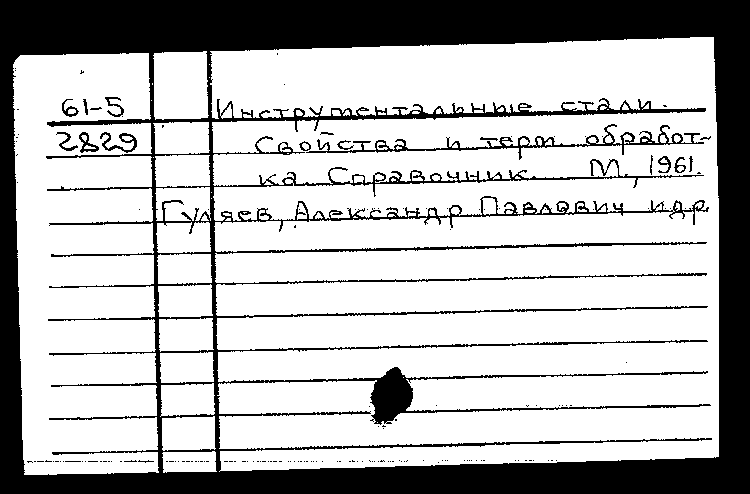 61-5 Инструментальные стали.
2829 Свойства и терм. обработ-
ка. Справочник. М., 1961.
Гуляев, Александр Павлович и др.